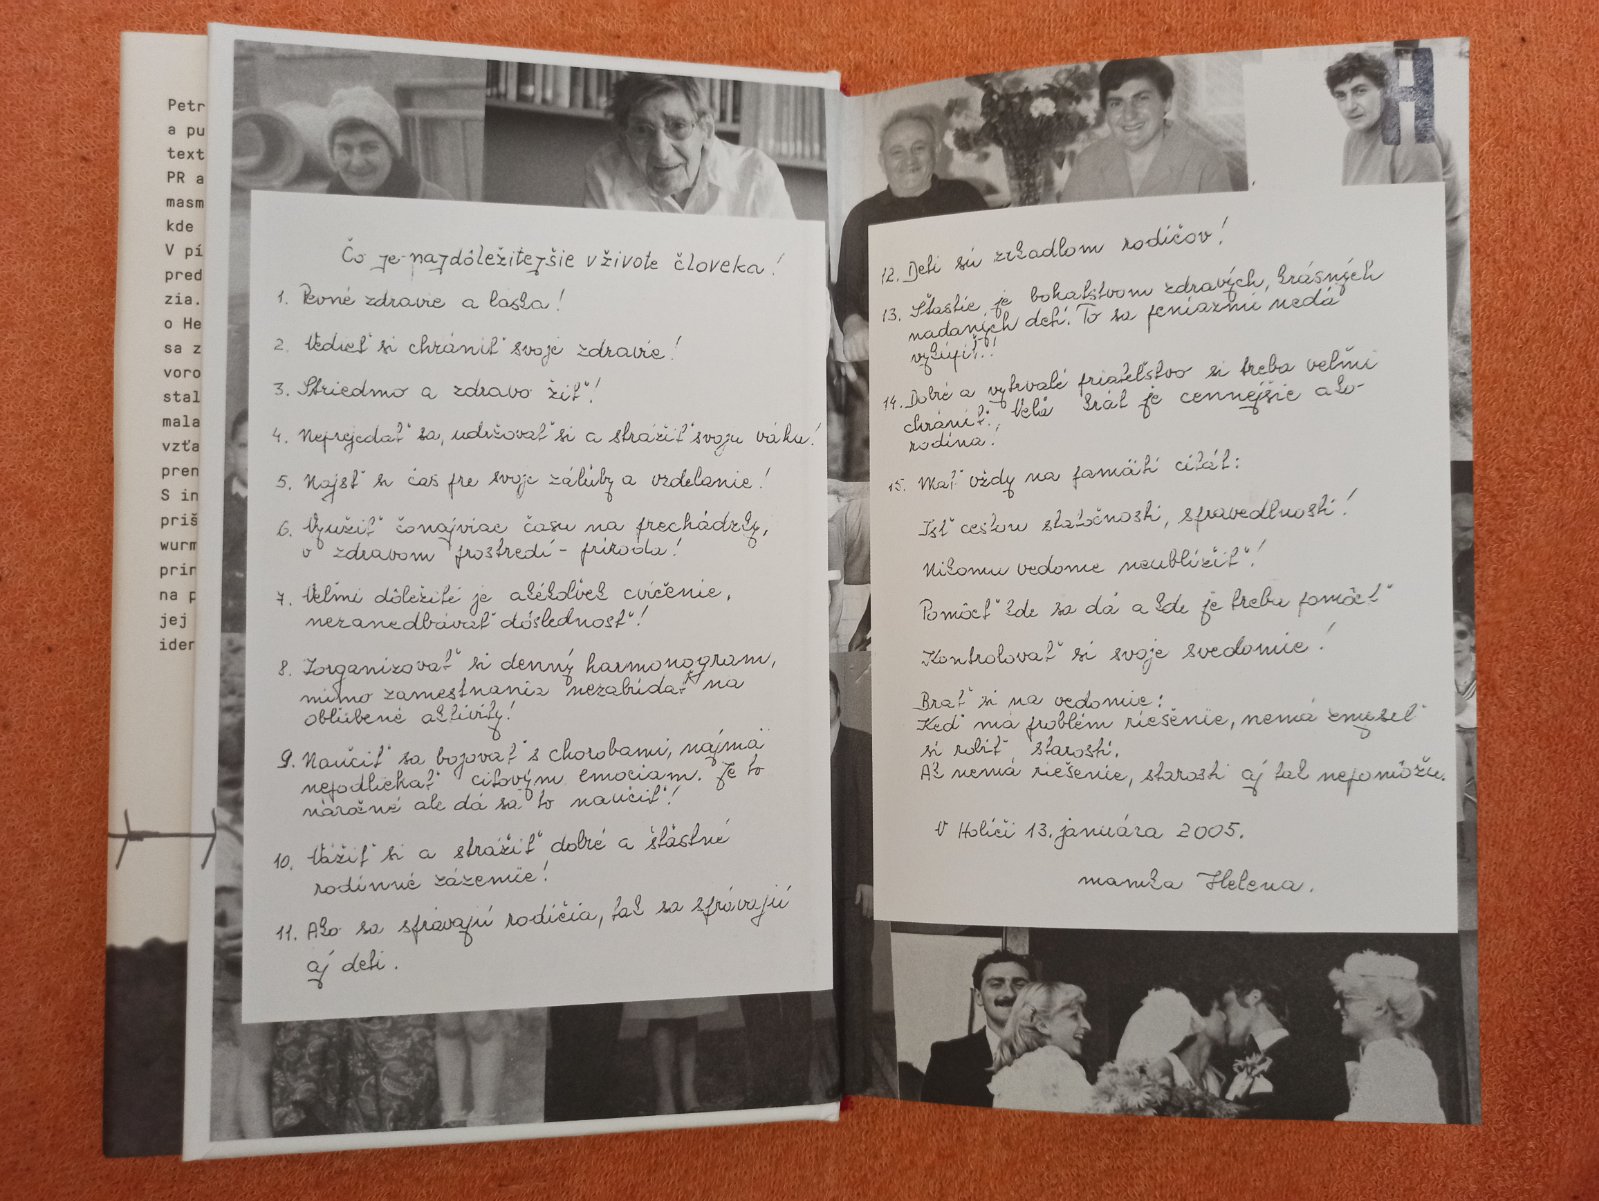 Petr
a pu
text
PR a
masm
kde
V pí
pred
zia.
o He
sa z
voro
stal
mala
vzťa
pren
S in
priš
wurm
prin
na p
jej
iden
Čo je najdôležitejšie v živote človeka!
1. Pevné zdravie a láska!
2. Vedieť si chrániť svoje zdravie!
3. Striedmo a zdravo žiť!
4. Neprejedať sa, udržovať si a strážiť svoju váhu!
5. Nájsť si čas pre svoje záľuby a vzdelanie!
6. Využiť čonajviac času na prechádzky,
v zdravom prostredí - príroda!
7. Veľmi dôležité je akékoľvek cvičenie,
nezanedbávať dôslednosť!
8. Zorganizovať si denný harmonogram,
mimo zamestnania nezabúdať na
obľúbené aktivity!
9. Naučiť sa bojovať s chorobami, najmä
nepodliehať citovým emociam. Je to
náročné ale dá sa to naučiť!
10. Vážiť si a strážiť dobré a šťastné
rodinné zázemie!
11. Ako sa správajú rodičia, tak sa správajú
aj deti.
12. Deti sú zrkadlom rodičov!
13. Šťastie je bohatstvom zdravých, krásnych
nadaných detí. To sa peniazmi nedá
vykúpiť!!
14. Dobré a vytrvalé priateľstvo si treba veľmi
chrániť. Veľa krát je cennejšie ako
rodina!
15. Mať vždy na pamäti citát:
Ísť cestou statočnosti, spravedlnosti!
Nikomu vedome neublížiť!
Pomôcť kde sa dá a kde je treba pomôcť
Kontrolovať si svoje svedomie!
Brať si na vedomie:
Keď má problém riešenie, nemá zmysel
si robiť starosti.
Ak nemá riešenie, starosti aj tak nepomôžu.
V Holíči 13. januára 2005.
mamka Helena.
H